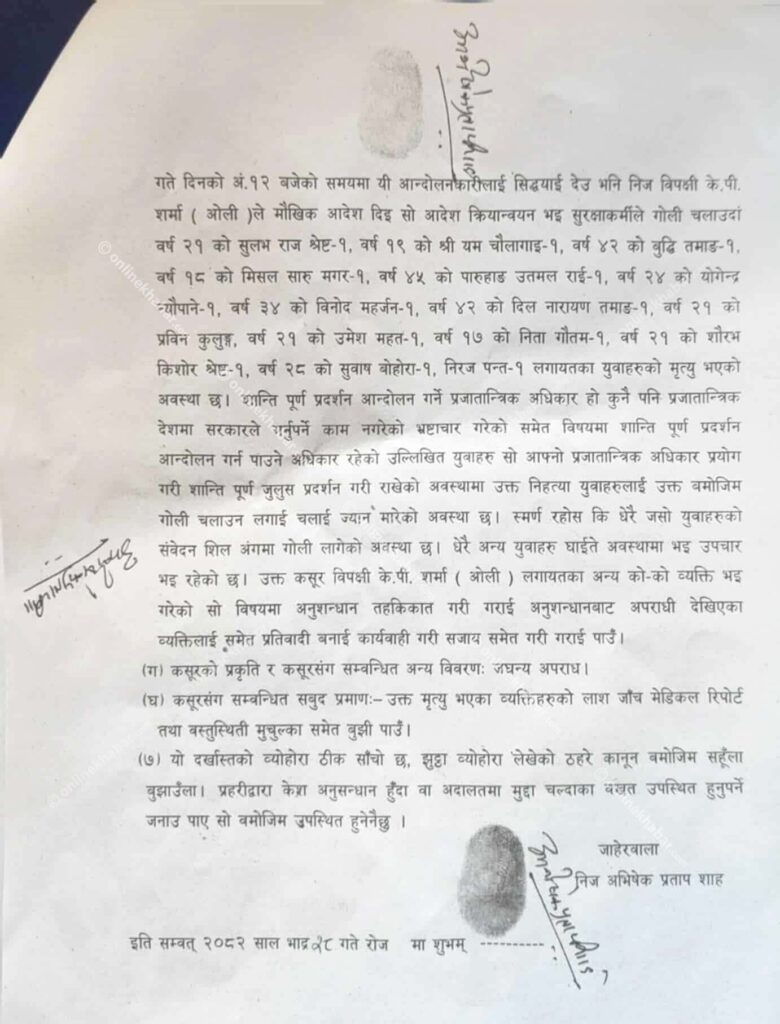 गते दिनको अं.१२ बजेको समयमा यी आन्दोलनकारीलाई सिद्धयाई देउ भनि निज विपक्षी के.पी.
शर्मा ( ओली )ले मौखिक आदेश दिइ सो आदेश क्रियान्वयन भइ सुरक्षाकर्मीले गोली चलाउदां
वर्ष २१ को सुलभ राज श्रेष्ट-१, वर्ष १९ को श्री यम चौलागाइ-१, वर्ष ४२ को बुद्धि तमाङ-१,
वर्ष १८ को मिसल सारु मगर-१, वर्ष ४५ को पारुहाङ उतमल राई-१, वर्ष २४ को योगेन्द्र
न्यौपाने-१, वर्ष ३४ को विनोद महर्जन-१, वर्ष ४२ को दिल नारायण तमाङ-१, वर्ष २१ को
प्रविन कुलुङ्ग, वर्ष २१ को उमेश महत-१, वर्ष १७ को निता गौतम-१, वर्ष २१ को शौरभ
किशोर श्रेष्ट-१, वर्ष २८ को सुवाष बोहोरा-१, निरज पन्त-१ लगायतका युवाहरुको मृत्यु भएको
अवस्था छ। शान्ति पूर्ण प्रदर्शन आन्दोलन गर्ने प्रजातान्त्रिक अधिकार हो कुनै पनि प्रजातान्त्रिक
देशमा सरकारले गर्नुपर्ने काम नगरेको भ्रष्टाचार गरेको समेत विषयमा शान्ति पूर्ण प्रदर्शन
आन्दोलन गर्न पाउने अधिकार रहेको उल्लिखित युवाहरु सो आफ्नो प्रजातान्त्रिक अधिकार प्रयोग
गरी शान्ति पूर्ण जुलुस प्रदर्शन गरी राखेको अवस्थामा उक्त निहत्या युवाहरुलाई उक्त बमोजिम
गोली चलाउन लगाई चलाई ज्यान मारेको अवस्था छ। स्मर्ण रहोस कि धेरै जसो युवाहरुको
संवेदन शिल अंगमा गोली लागेको अवस्था छ। धेरै अन्य युवाहरु घाईते अवस्थामा भइ उपचार
भइ रहेको छ। उक्त कसूर विपक्षी के.पी. शर्मा ( ओली ) लगायतका अन्य को-को व्यक्ति भइ
गरेको सो विषयमा अनुशन्धान तहकिकात गरी गराई अनुशन्धानबाट अपराधी देखिएका
व्यक्तिलाई समेत प्रतिवादी बनाई कार्यवाही गरी सजाय समेत गरी गराई पाउँ।
(ग) कसूरको प्रकृति र कसूरसंग सम्वन्धित अन्य विवरणः जघन्य अपराध।
(घ) कसूरसंग सम्वन्धित सबुद प्रमाणः– उक्त मृत्यु भएका व्यक्तिहरुको लाश जाँच मेडिकल रिपोर्ट
तथा वस्तुस्थिती मुचुल्का समेत बुझी पाउँ।
(७) यो दर्खास्तको व्योहोरा ठीक साँचो छ, झुठ्ठा व्योहोरा लेखेको ठहरे कानून बमोजिम सहूँला
बुझाउँला। प्रहरीद्वारा केश अनुसन्धान हुँदा वा अदालतमा मुद्दा चल्दाका बखत उपस्थित हुनुपर्ने
जनाउ पाए सो बमोजिम उपस्थित हुनेनैछु ।
जाहेरवाला
निज अभिषेक प्रताप शाह
इति सम्वत् २०८२ साल भाद्र २८ गते रोज मा शुभम् -----------